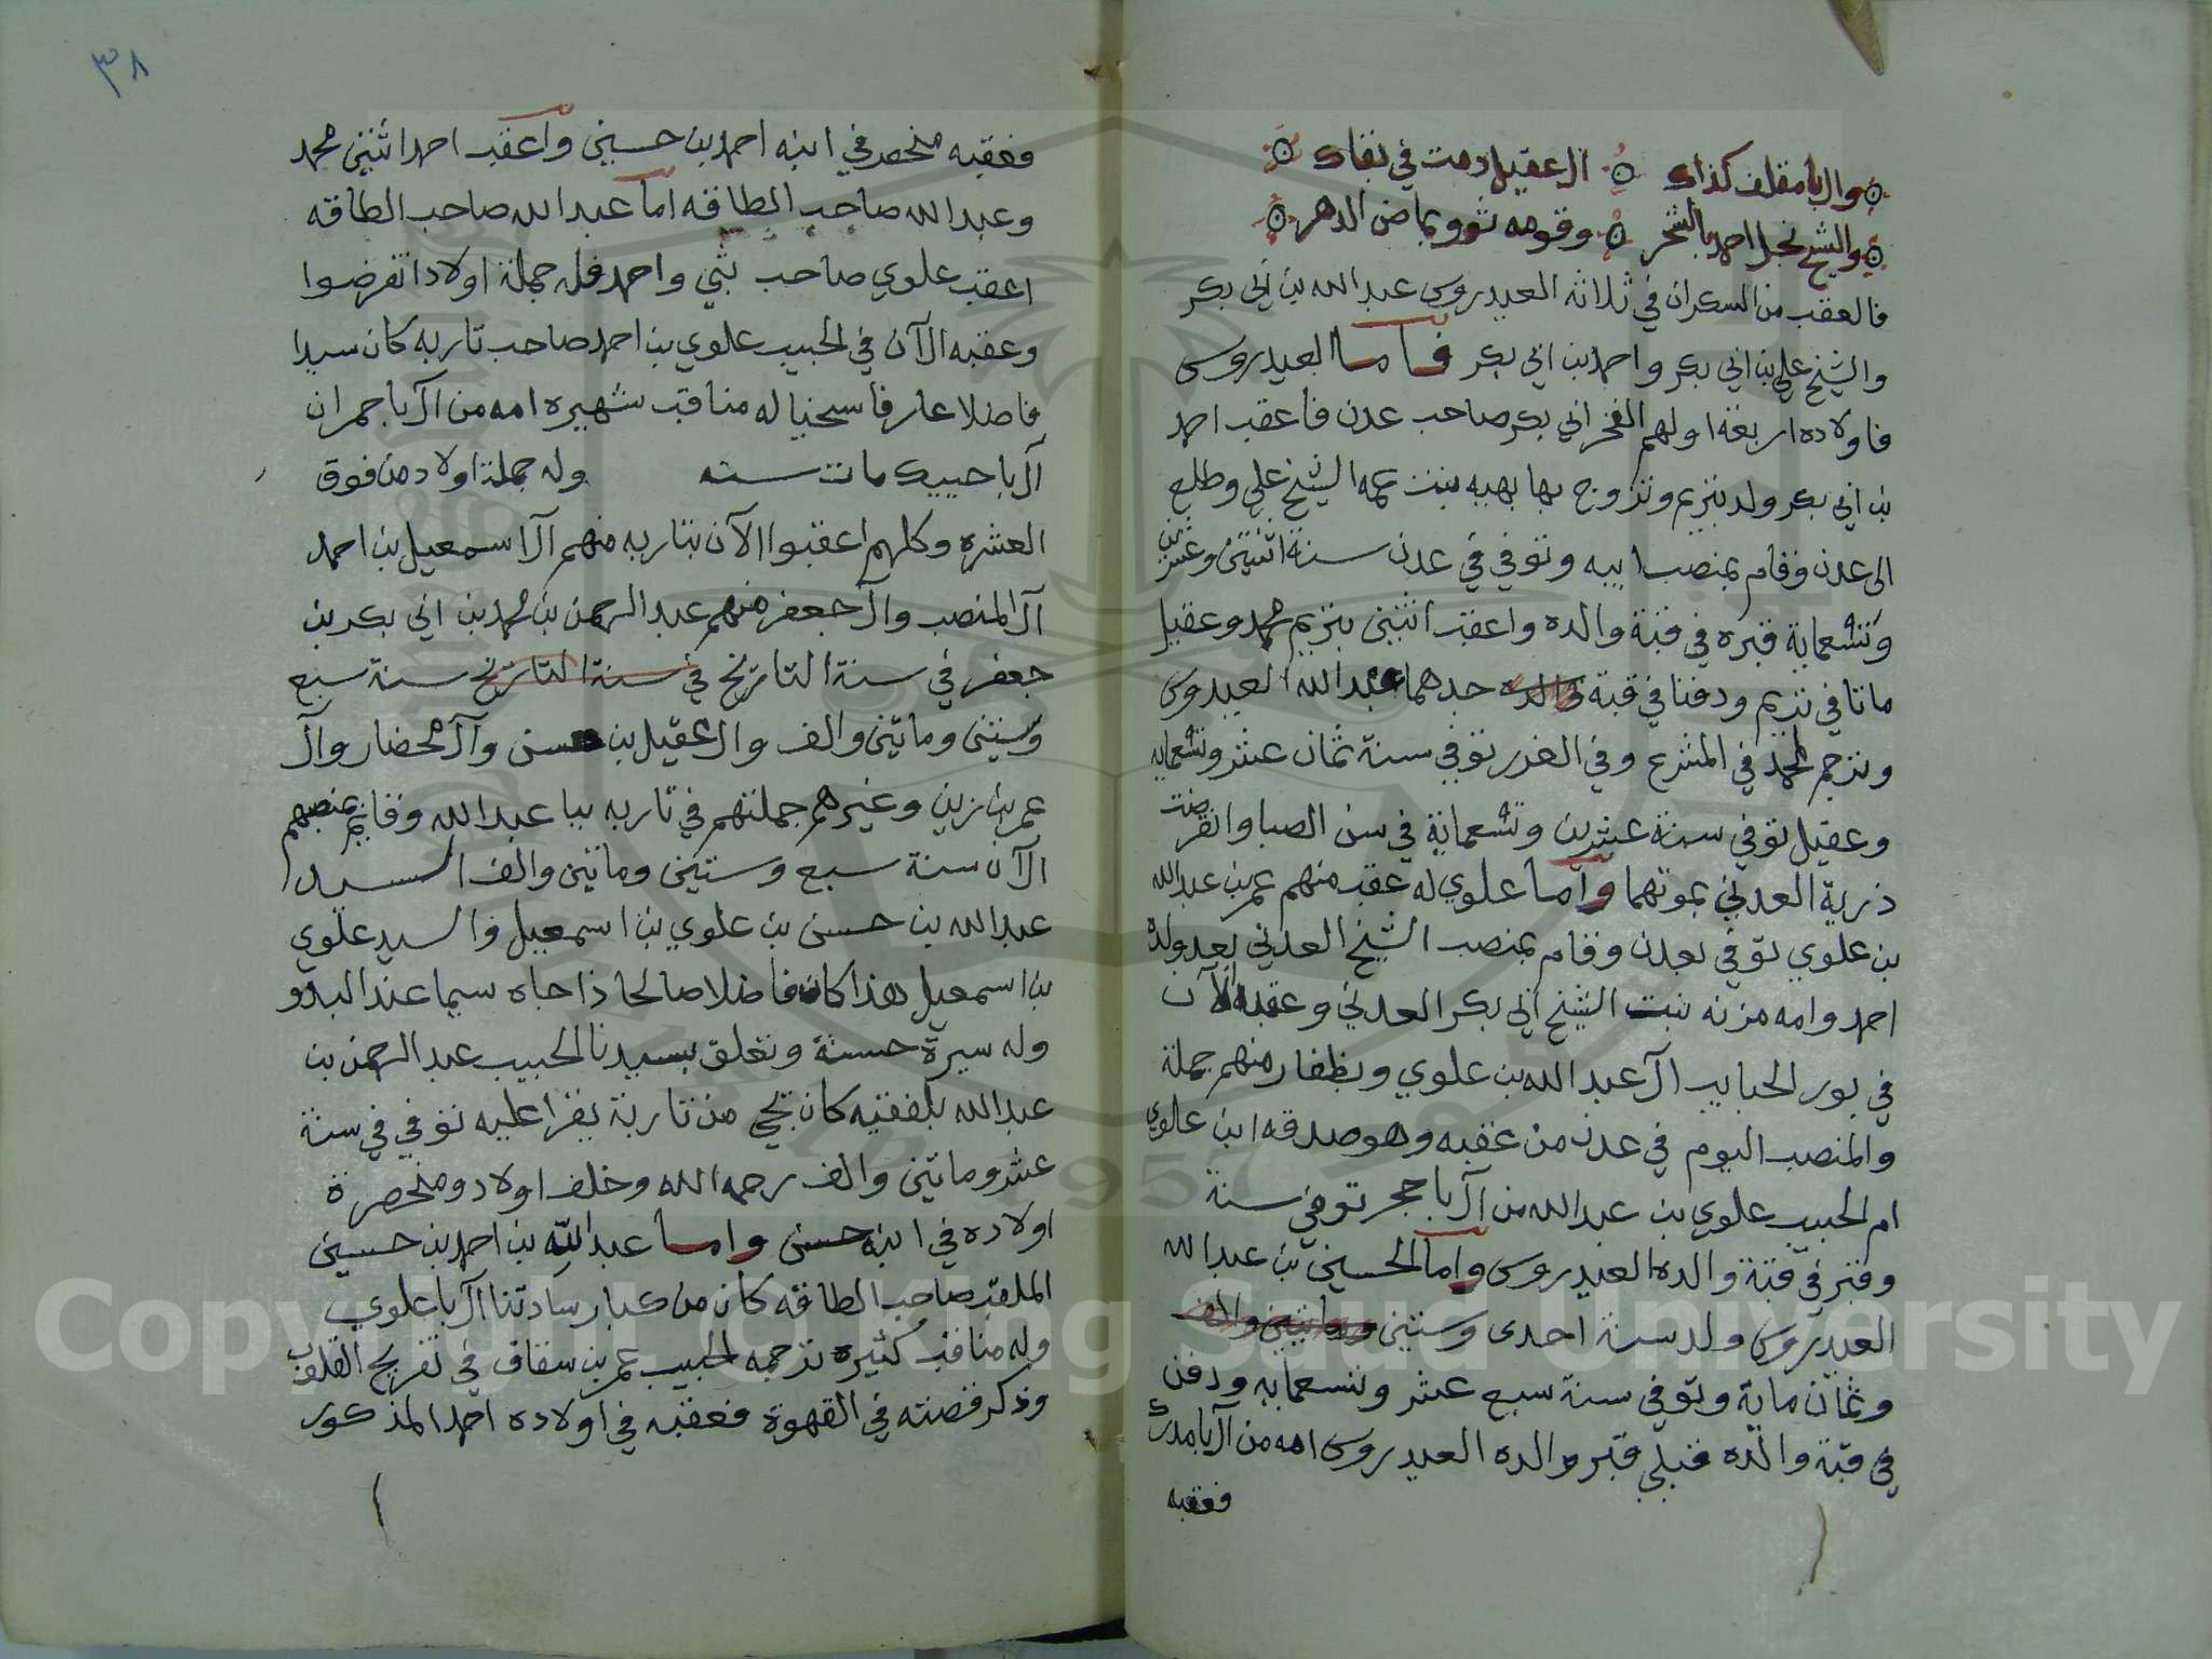 وال بامقلف كذاك ال عقيل دمت في نقاك
والشيخ نجل احمد بالشحر وقومه ثووبماض الدهر
فالعقب من السكران في ثلاثه العيدروس عبدالله بن ابي بكر
والشيخ علي بن ابي بكر واحمد بن ابي بكر فاما العيدروس
فاولاده اربعة اولهم الفخر ابي بكر صاحب عدن فاعقب احمد
بن ابي بكر ولد بتريم وتزوج بها بهيه بنت عمه الشيخ علي وطلع
الى عدن وقام بمنصب ابيه وتوفي في عدن سنة اثنتين وعشرين
وتسعماية قبره في قبة والده واعقب اثنين بتريم محمد وعقيل
ماتا في تريم ودفنا في قبة والده جدهما عبدالله العيدروس
وترجم لمحمد في المشرع وفي الغرر توفي سنة ثمان عشر وتسعمايه
وعقيل توفي سنة عشرين وتسعماية في سن الصبا وانقرضت
ذرية العدني بموتهما واما علوي له عقب منهم عمر بن عبدالله
بن علوي توفي بعدن وقام بمنصب الشيخ العدني بعد ولده
احمد وامه مزنه بنت الشيخ ابي بكر العدني وعقبه الآن
في بور الحبايب آل عبدالله بن علوي وبظفار منهم جملة
والمنصب اليوم في عدن من عقبه وهو صدقه ابن علوي
ام الحبيب علوي بن عبدالله من آل باحجر توفي سنة
وقبر في قبة والده العيدروس واما الحسين بن عبدالله
العيدروس ولد سنة احدى وستين وماتين والف
وثمان ماية وتوفي سنة سبع عشر وتسعمايه ودفن
في قبة والده قبلي قبر والده العيدروس امه من آل بامدرك
فعقبه
٣٨
فعقبه منحصر في ابنه احمد بن حسين واعقب احمد اثنين محمد
وعبدالله صاحب الطاقه اما عبدالله صاحب الطاقه
اعقب علوي صاحب ثبي واحمد فله جملة اولاد انقرضوا
وعقبه الآن في الحبيب علوي بن احمد صاحب تاربه كان سيدا
فاضلا عارفا سخيا له مناقب شهيره امه من آل باجمران
آل باحبيك مات سنه وله جملة اولاد من فوق
العشره وكلهم اعقبوا الآن بتاربه منهم آل اسمعيل بن احمد
آل المنصب وآل جعفر منهم عبدالرحمن بن محمد بن ابي بكر بن
جعفر في سنة التاريخ في سنة التاريخ سنة سبع
وستين وماتين والف وال عقيل بن حسن وآل محضار وآل
عمر بن زين وغيرهم جملتهم في تاربه ببا عبدالله وقايم بمنصبهم
الآن سنة سبع وستين وماتين والف السيد
عبدالله بن حسن بن علوي بن اسمعيل والسيد علوي
بن اسمعيل هذا كان فاضلا صالحا ذا جاه سيما عند البدو
وله سيرة حسنة وتعلق بسيدنا الحبيب عبدالرحمن بن
عبدالله بلفقيه كان يجي من تاربة يقرا عليه توفي في سنة
عشر وماتين والف رحمه الله وخلف اولاد ومنحصرة
اولاده في ابنه حسن واما عبدالله بن احمد بن حسين
الملقب صاحب الطاقه كان من كبار سادتنا آل باعلوي
وله مناقب كثيره ترجمه الحبيب عمر بن سقاف في تفريح القلوب
وذكر قصته في القهوة فعقبه في اولاده احمد المذكور
Copyright © King Saud University
1957